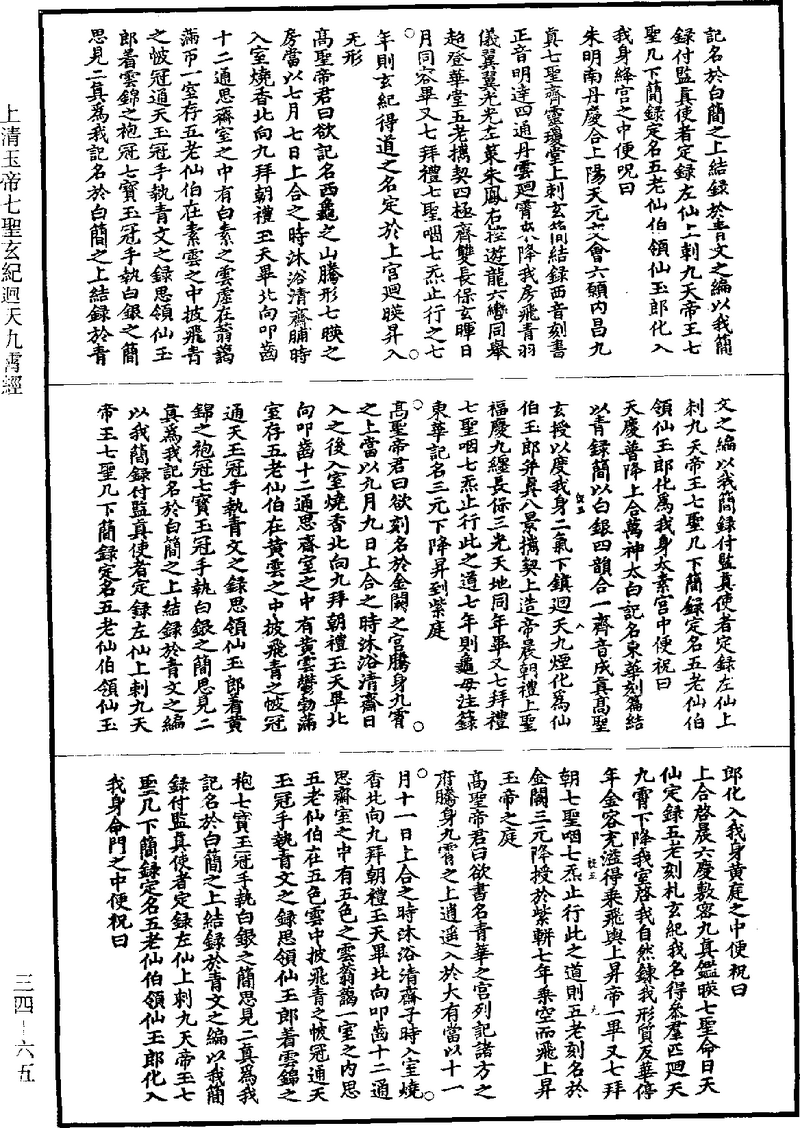 記名於白簡之上結録於青文之編以我簡
録付監真使者定録左仙上刺九天帝王七
聖几下簡録定名五老仙伯領仙玉郎化入
我身絳宫之中便祝曰
朱明南丹慶合上陽天元交會六頤内昌九
真七聖齊靈瓊堂上刺玄簡結録西音刻書
正音明達四通丹雲迴霄來降我房飛青羽
儀翼翼光光左策朱鳳右控遊龍六轡同舉
超登華堂五老攜契四極齊雙長保玄暉日
月同容畢又七拜禮七聖咽七炁止行之七
年則玄紀得道之名定於上宫迴映昇入
无形
高聖帝君曰欲記名西龜之山騰形七映之
房當以七月七日上合之時沐浴清齋脯時
入室燒香北向九拜朝禮玉天畢北向叩齒
十二通思齋室之中有白素之雲虚在蓊藹
滿帀一室存五老仙伯在素雲之中披飛青
之帔冠通天玉冠手執青文之録思領仙玉
郎着雲錦之袍冠七寶玉冠手執白銀之簡
思見二真爲我記名於白簡之上結録於青
文之編以我簡録付監真使者定録左仙上
刺九天帝王七聖几下簡録定名五老仙伯
領仙玉郎化爲我身太素宫中便祝曰
天慶普降上合萬神太白記名東華刻篇結
以青録簡以白銀四韻合一齊音成真高聖
玄授以度我身二氣下鎮迴天九煙化爲仙
伯玉郎弁真八景攜契上造帝晨朝禮上聖
福慶九纏長保三光天地同年畢又七拜禮
七聖咽七炁止行此之道七年則龜母注籙
東華記名三元下降昇到紫庭
高聖帝君曰欲刻名於金闕之宫騰身九霄
之上當以九月九日上合之時沐浴清齋日
入之後入室燒香北向九拜朝禮玉天畢北
向叩齒十二通思齋室之中有黄雲鬱勃滿
室存五老仙伯在黄雲之中披飛青之帔冠
通天玉冠手執青文之録思領仙玉郎着黄
錦之袍冠七寶玉冠手執白銀之簡思見二
真爲我記名於白簡之上結録於青文之編
以我簡録付監真使者定録左仙上刺九天
帝王七聖几下簡録定名五老仙伯領仙玉
郎化入我身黄庭之中便祝曰
上合啓晨六慶敷容九真鑑映七聖命日天
仙定録五老刻札玄紀我名得叅羣匹迴天
九霄下降我室啓我自然鍊我形質反華停
年金容充溢得乘飛輿上昇帝一畢又七拜
朝七聖咽七炁止行此之道則五老刻名於
金闕三元降授於紫軿七年乘空而飛上昇
玉帝之庭
高聖帝君曰欲書名青華之宫列記諸方之
府騰身九霄之上逍遥入於大有當以十一
月十一日上合之時沐浴清齋子時入室燒
香北向九拜朝禮玉天畢北向叩齒十二通
思齋室之中有五色之雲蓊藹一室之内思
五老仙伯在五色雲中披飛青之帔冠通天
玉冠手執青文之録思領仙玉郎着雲錦之
袍七寶玉冠手執白銀之簡思見二真爲我
記名於白簡之上結録於青文之編以我簡
録付監真使者定録左仙上刺九天帝王七
聖几下簡録定名五老仙伯領仙玉郎化入
我身命門之中便祝曰
上清玉帝七聖玄紀迴天九霄經
三四－六五